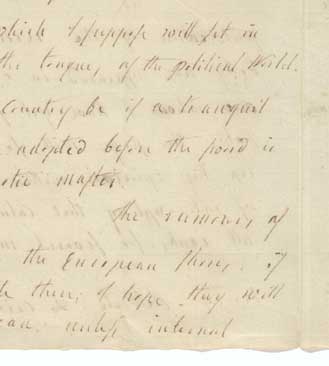 which I suppose will set in
the tongues of the political World.
Country be if a tranquil
adopted before the good is
the master
The rumours of
the European if
then, I hope they will
unless internal